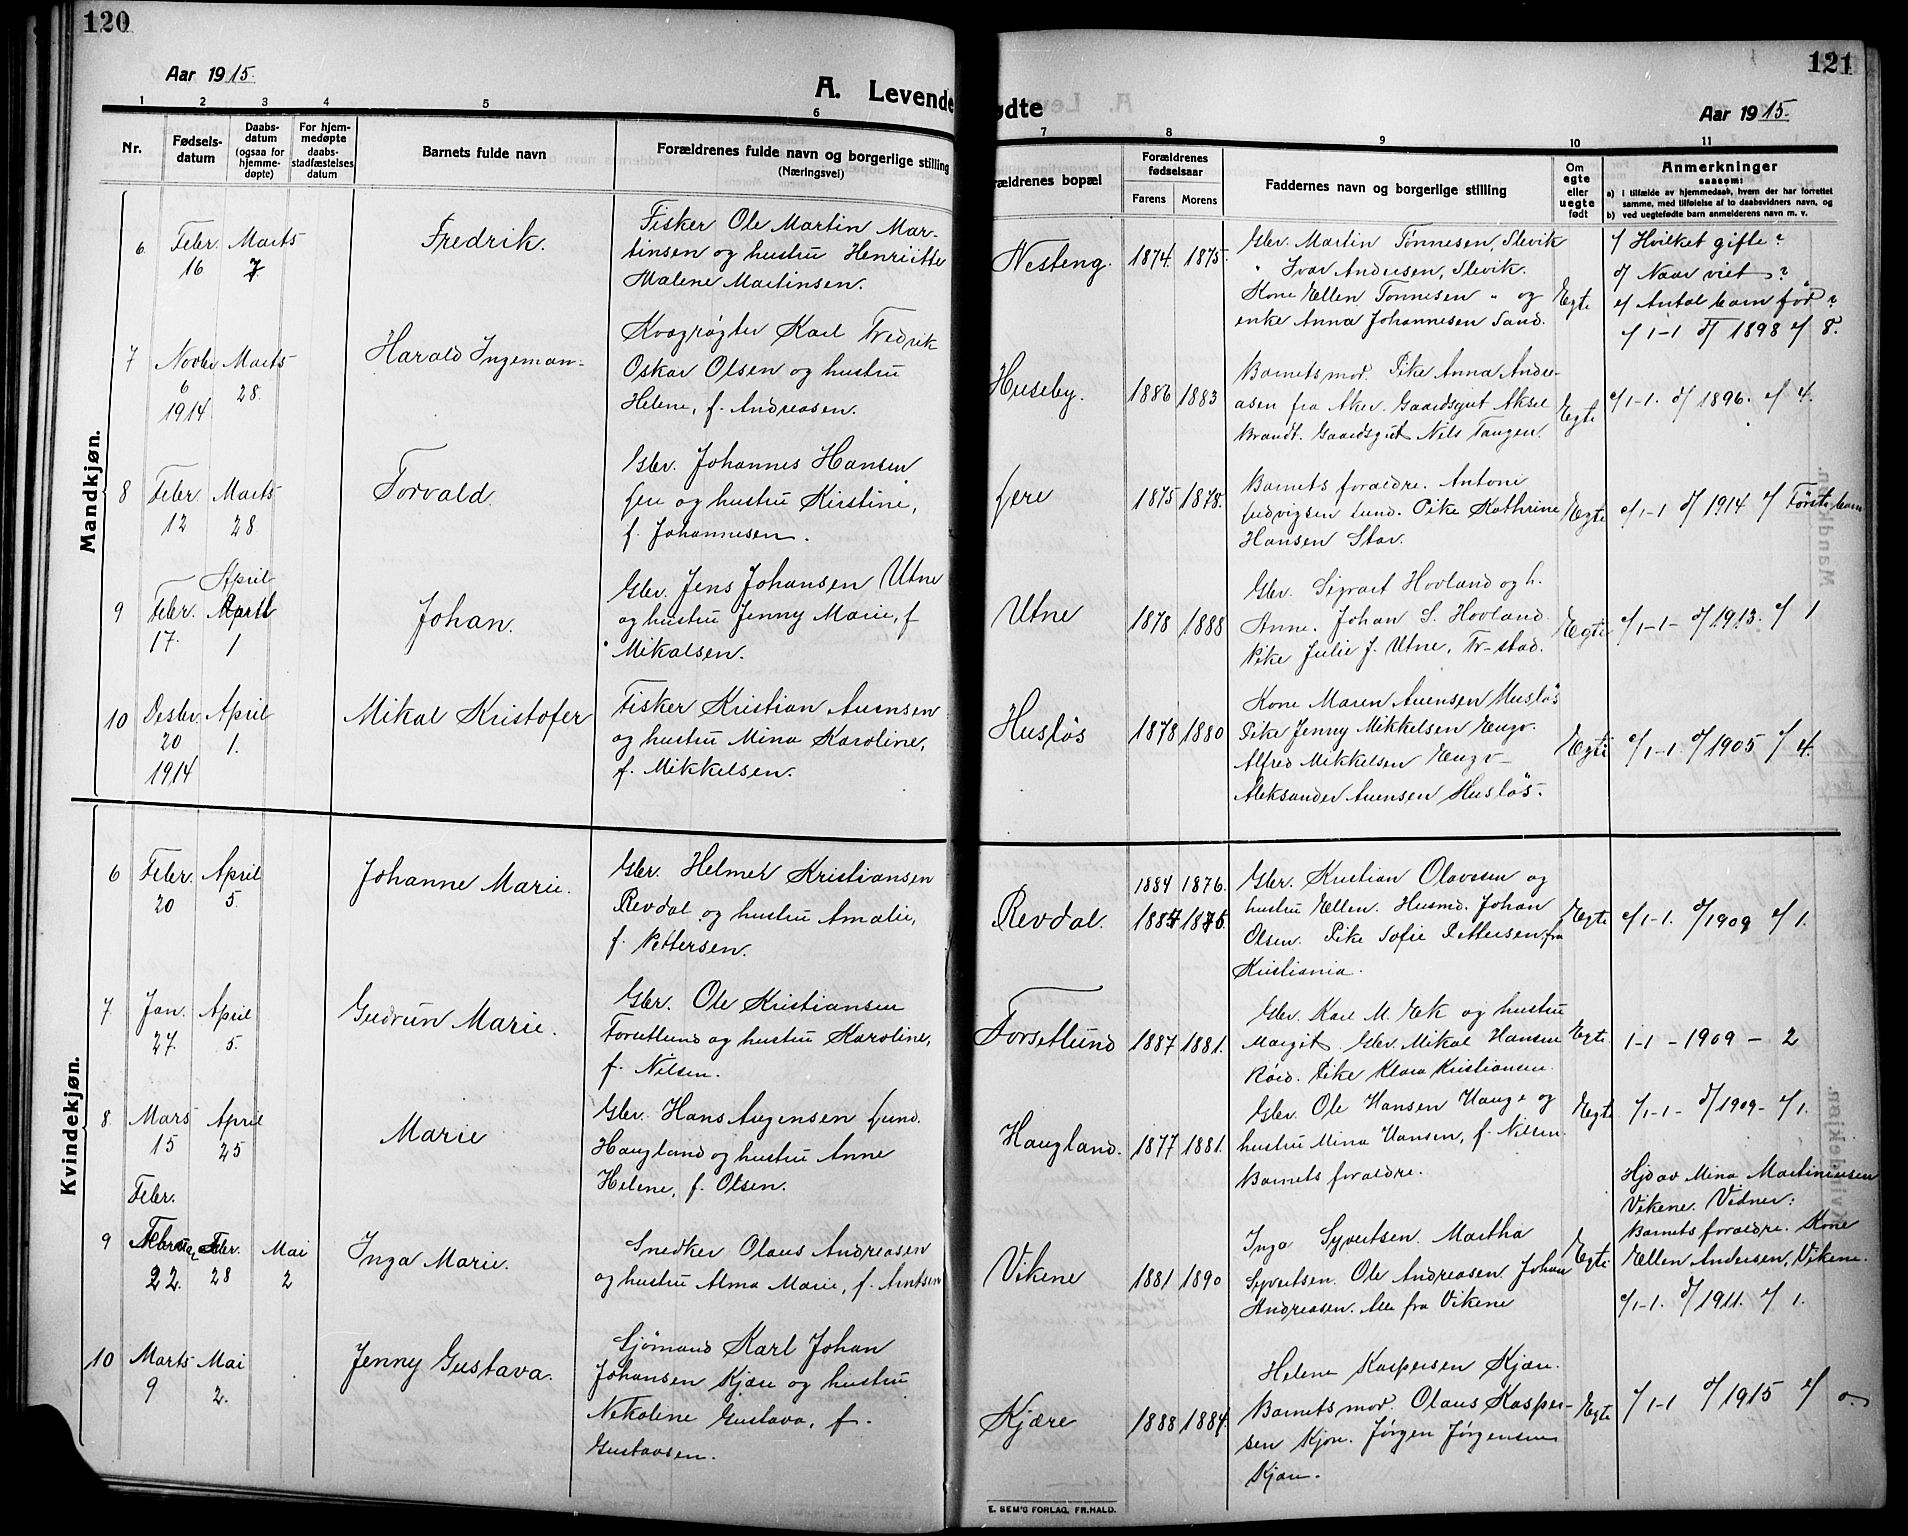 120
Aar 1915.
A. Levende
1 2 3 4 5 6
Nr.
Fødsels-
datum
Daabs-
datum
(ogsaa for
hjemme-
døpte)
For hjem-
medøpte
daabs-
stadfæstelses
datum
Barnets fulde navn
Forældrenes fulde navn og borgerlige stilling
(Næringsvei)
Mandkjøn.
6 Febr. 16 Marts 7
Fredrik.
Fisker Ole Martin Mar-
tinsen og hustru Henriette
Malene Martinsen.
7 Novbr 6 1914 Marts 28
Harald Ingeman
Kvægrøgter Karl Fredrik
Oskar Olsen og hustru
Helene, f. Andreasen.
8 Febr. 12 Marts 28
Torvald.
Gbr. Johannes Hansen
Lere og hustru Kristine,
f. Johannesen.
9 Febr. 17. April 1
Johan.
Gbr. Jens Johansen Utne
og hustru Jenny Marie, f
Mikalsen.
10 Desbr. 20 1914 April 1.
Mikal Kristofer
Fisker Kristian Auensen
og hustru Mina Karoline,
f. Mikkelsen.
Kvindekjøn.
6 Febr. 20 April 5.
Johanne Marie.
Gbr. Helmer Kristiansen
Revdal og hustru Amalie,
f. Pettersen.
7 Jan. 27. April 5.
Gudrun Marie.
Gbr. Ole Kristiansen
Forsetlund og hustru Karoline,
f. Nilsen.
8 Mars 15 April 25
Marie
Gbr. Hans Augensen Lund.
Haugland og hustru Anne
Helene, f. Olsen.
9 Febr. 22. Febr. 28 Mai 2
Inga Marie.
Snedker Olaus Andreasen
og hustru Alma Marie, f. Arntsen
10 Marts 9 Mai 2.
Jenny Gustava.
Sjømand Karl Johan
Johansen Kjære og hustru
Nekoline Gustava, f.
Gustavsen.
121
ødte
Aar 1915.
7 8 9 10 11
rældrenes bopæl
Forældrenes
fødselsaar
Farens Morens
Faddernes navn og borgerlige stilling
Om
egte
eller
uegte
født
Anmerkninger
saasom:
a) I tilfælde av hjemmedaab, hvem der har forrettet
samme, med tilføielse af to daabsvidners navn, og
b) ved uegtefødte barn anmelderens navn m. v.
Nesteng. 1874. 1875.
Gbr. Martin Tønnesen, Slevik
" Ivar Andersen, Slevik.
Kone Ellen Tønnesen " og
enke Anna Johannesen Sand.
Egte
c/ Hvilket gifte?
d/ Naar viet?
e/ Antal barn før?
c/ 1-1 d/ 1898 e/ 8.
Huseby. 1886 1883
Barnets mor. Pike Anna Andre-
asen fra Aker. Gaardsgut Aksel
Brandt. Gaardsgut Nils Tangen.
Egte
c/ 1-1. d/ 1896. e/ 4.
Lere 1875 1878.
Barnets forældre. Antoni
Ludvigsen Lund. Pike Kathrine
Hansen Stav.
Egte
c/ 1-1 d/ 1914 e/ Første barn
Utne 1878 1888
Gbr. Sigvart Hovland og h.
Anne. Johan S. Hovland.
Pike Julie J. Utne, Fr-stad.
Egte
c/ 1-1- d/ 1913. e/ 1
Husløs 1878 1880
Kone Maren Auensen Husløs
Pike Jenny Mikkelsen Engv.
Alfred Mikkelsen Engv-
Aleksander Auensen Husløs.
Egte
c/ 1-1. d/ 1905 e/ 4.
1884 1876.
Revdal.
Gbr. Kristian Olavesen og
hustru Ellen. Husmd. Johan
Olsen. Pike Sofie Pettersen, fra
Kristiania.
Egte
c/ 1-1. d/ 1909 e/ 1.
Forsetlund 1887 1881.
Gbr. Karl M. Ek og hustru
Margit. Gbr. Mikal Hansen
Røed. Pike Klara Kristiansen.
Egte
1-1 - 1909 - 2
Haugland. 1877 1881.
Gbr. Ole Hansen Hauge og
hustru Mina Hansen, f. Nilsen.
Barnets forældre.
Egte
c/ 1-1- d/ 1909- e/ 1.
Vikene 1881 1890
Inga Syvertsen. Martha
Syvertsen. Ole Andreasen. Johan
Andreasen. Alle fra Vikene
Egte
Hjd av Mina Martiniusen
Vikene. Vidner:
Barnets forældre. Kone
Ellen Andersen, Vikene.
c/ 1-1. d/ 1911. e/ 1.
Kjære 1888 1884.
Helene Kaspersen Kjære.
Barnets mor. Olaus Kasper-
sen Kjære. Jørgen Jørgensen
Kjære.
Egte
c/ 1-1 d/ 1915 e/ 0.
E. SEM'S FORLAG, FR.HALD.